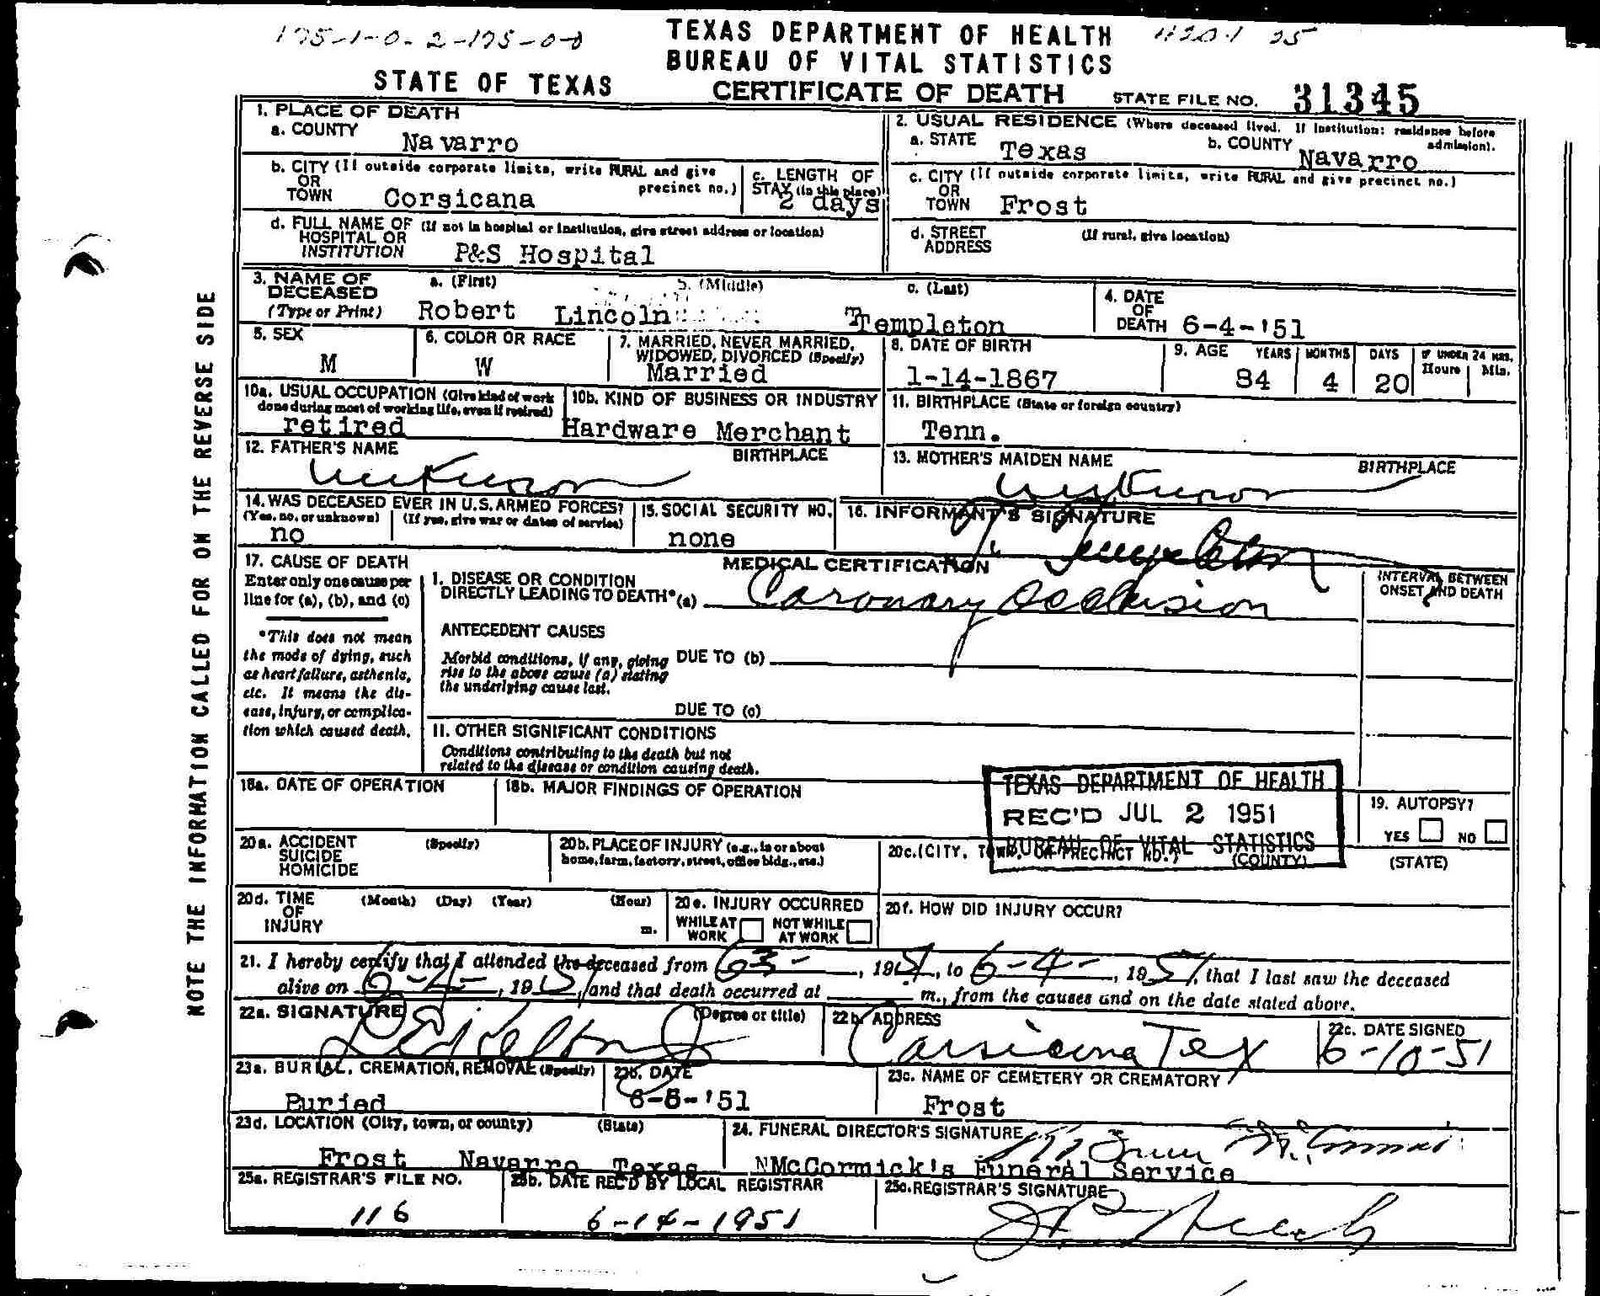 175-1-0-2-175-0-0
TEXAS DEPARTMENT OF HEALTH
BUREAU OF VITAL STATISTICS
STATE OF TEXAS
CERTIFICATE OF DEATH
STATE FILE NO. 31345
NOTE THE INFORMATION CALLED FOR ON THE REVERSE SIDE
1. PLACE OF DEATH
a. COUNTY
Navarro
2. USUAL RESIDENCE (Where deceased lived. If institution: residence before admission).
a. STATE Texas
b. COUNTY Navarro
b. CITY (If outside corporate limits, write RURAL and give precinct no.)
OR
TOWN Corsicana
c. LENGTH OF STAY (in this place)
2 days
c. CITY (If outside corporate limits, write RURAL and give precinct no.)
OR
TOWN Frost
d. FULL NAME OF HOSPITAL OR INSTITUTION (If not in hospital or institution, give street address or location)
P&S Hospital
d. STREET ADDRESS (If rural, give location)
3. NAME OF DECEASED (Type or Print)
a. (First) Robert
b. (Middle) Lincoln
c. (Last) Templeton
4. DATE OF DEATH 6-4-'51
5. SEX
M
6. COLOR OR RACE
W
7. MARRIED, NEVER MARRIED, WIDOWED, DIVORCED (Specify)
Married
8. DATE OF BIRTH
1-14-1867
9. AGE YEARS MONTHS DAYS IF UNDER 24 HRS. Hours Min.
84 4 20
10a. USUAL OCCUPATION (Give kind of work done during most of working life, even if retired)
retired
10b. KIND OF BUSINESS OR INDUSTRY
Hardware Merchant
11. BIRTHPLACE (State or foreign country)
Tenn.
12. FATHER'S NAME BIRTHPLACE
Unknown
13. MOTHER'S MAIDEN NAME BIRTHPLACE
Unknown
14. WAS DECEASED EVER IN U.S. ARMED FORCES?
(Yes, no, or unknown) (If yes, give war or dates of service)
no
15. SOCIAL SECURITY NO.
none
16. INFORMANT'S SIGNATURE
Templeton
17. CAUSE OF DEATH
Enter only one cause per line for (a), (b), and (c)
*This does not mean the mode of dying, such as heart failure, asthenia, etc. It means the disease, injury, or complication which caused death.
MEDICAL CERTIFICATION
INTERVAL BETWEEN ONSET AND DEATH
I. DISEASE OR CONDITION DIRECTLY LEADING TO DEATH* (a) Coronary Occlusion
ANTECEDENT CAUSES
Morbid conditions, if any, giving rise to the above cause (a) stating the underlying cause last.
DUE TO (b)
DUE TO (c)
II. OTHER SIGNIFICANT CONDITIONS
Conditions contributing to the death but not related to the disease or condition causing death.
18a. DATE OF OPERATION
18b. MAJOR FINDINGS OF OPERATION
TEXAS DEPARTMENT OF HEALTH
REC'D JUL 2 1951
BUREAU OF VITAL STATISTICS
19. AUTOPSY?
YES NO
20a. ACCIDENT SUICIDE HOMICIDE (Specify)
20b. PLACE OF INJURY (e.g., in or about home, farm, factory, street, office bldg., etc.)
20c. (CITY, TOWN, OR PRECINCT NO.) (COUNTY) (STATE)
20d. TIME OF INJURY (Month) (Day) (Year) (Hour) m.
20e. INJURY OCCURRED
WHILE AT WORK NOT WHILE AT WORK
20f. HOW DID INJURY OCCUR?
21. I hereby certify that I attended the deceased from 6-3-, 1951, to 6-4-, 1951, that I last saw the deceased
alive on 6-4-, 1951, and that death occurred at m., from the causes and on the date stated above.
22a. SIGNATURE (Degree or title)
22b. ADDRESS
Corsicana Tex
22c. DATE SIGNED
6-10-51
23a. BURIAL, CREMATION, REMOVAL (Specify)
Buried
23b. DATE
6-6-'51
23c. NAME OF CEMETERY OR CREMATORY
Frost
23d. LOCATION (City, town, or county) (State)
Frost Navarro Texas
24. FUNERAL DIRECTOR'S SIGNATURE
McCormick's Funeral Service
25a. REGISTRAR'S FILE NO.
116
25b. DATE REC'D BY LOCAL REGISTRAR
6-14-1951
25c. REGISTRAR'S SIGNATURE